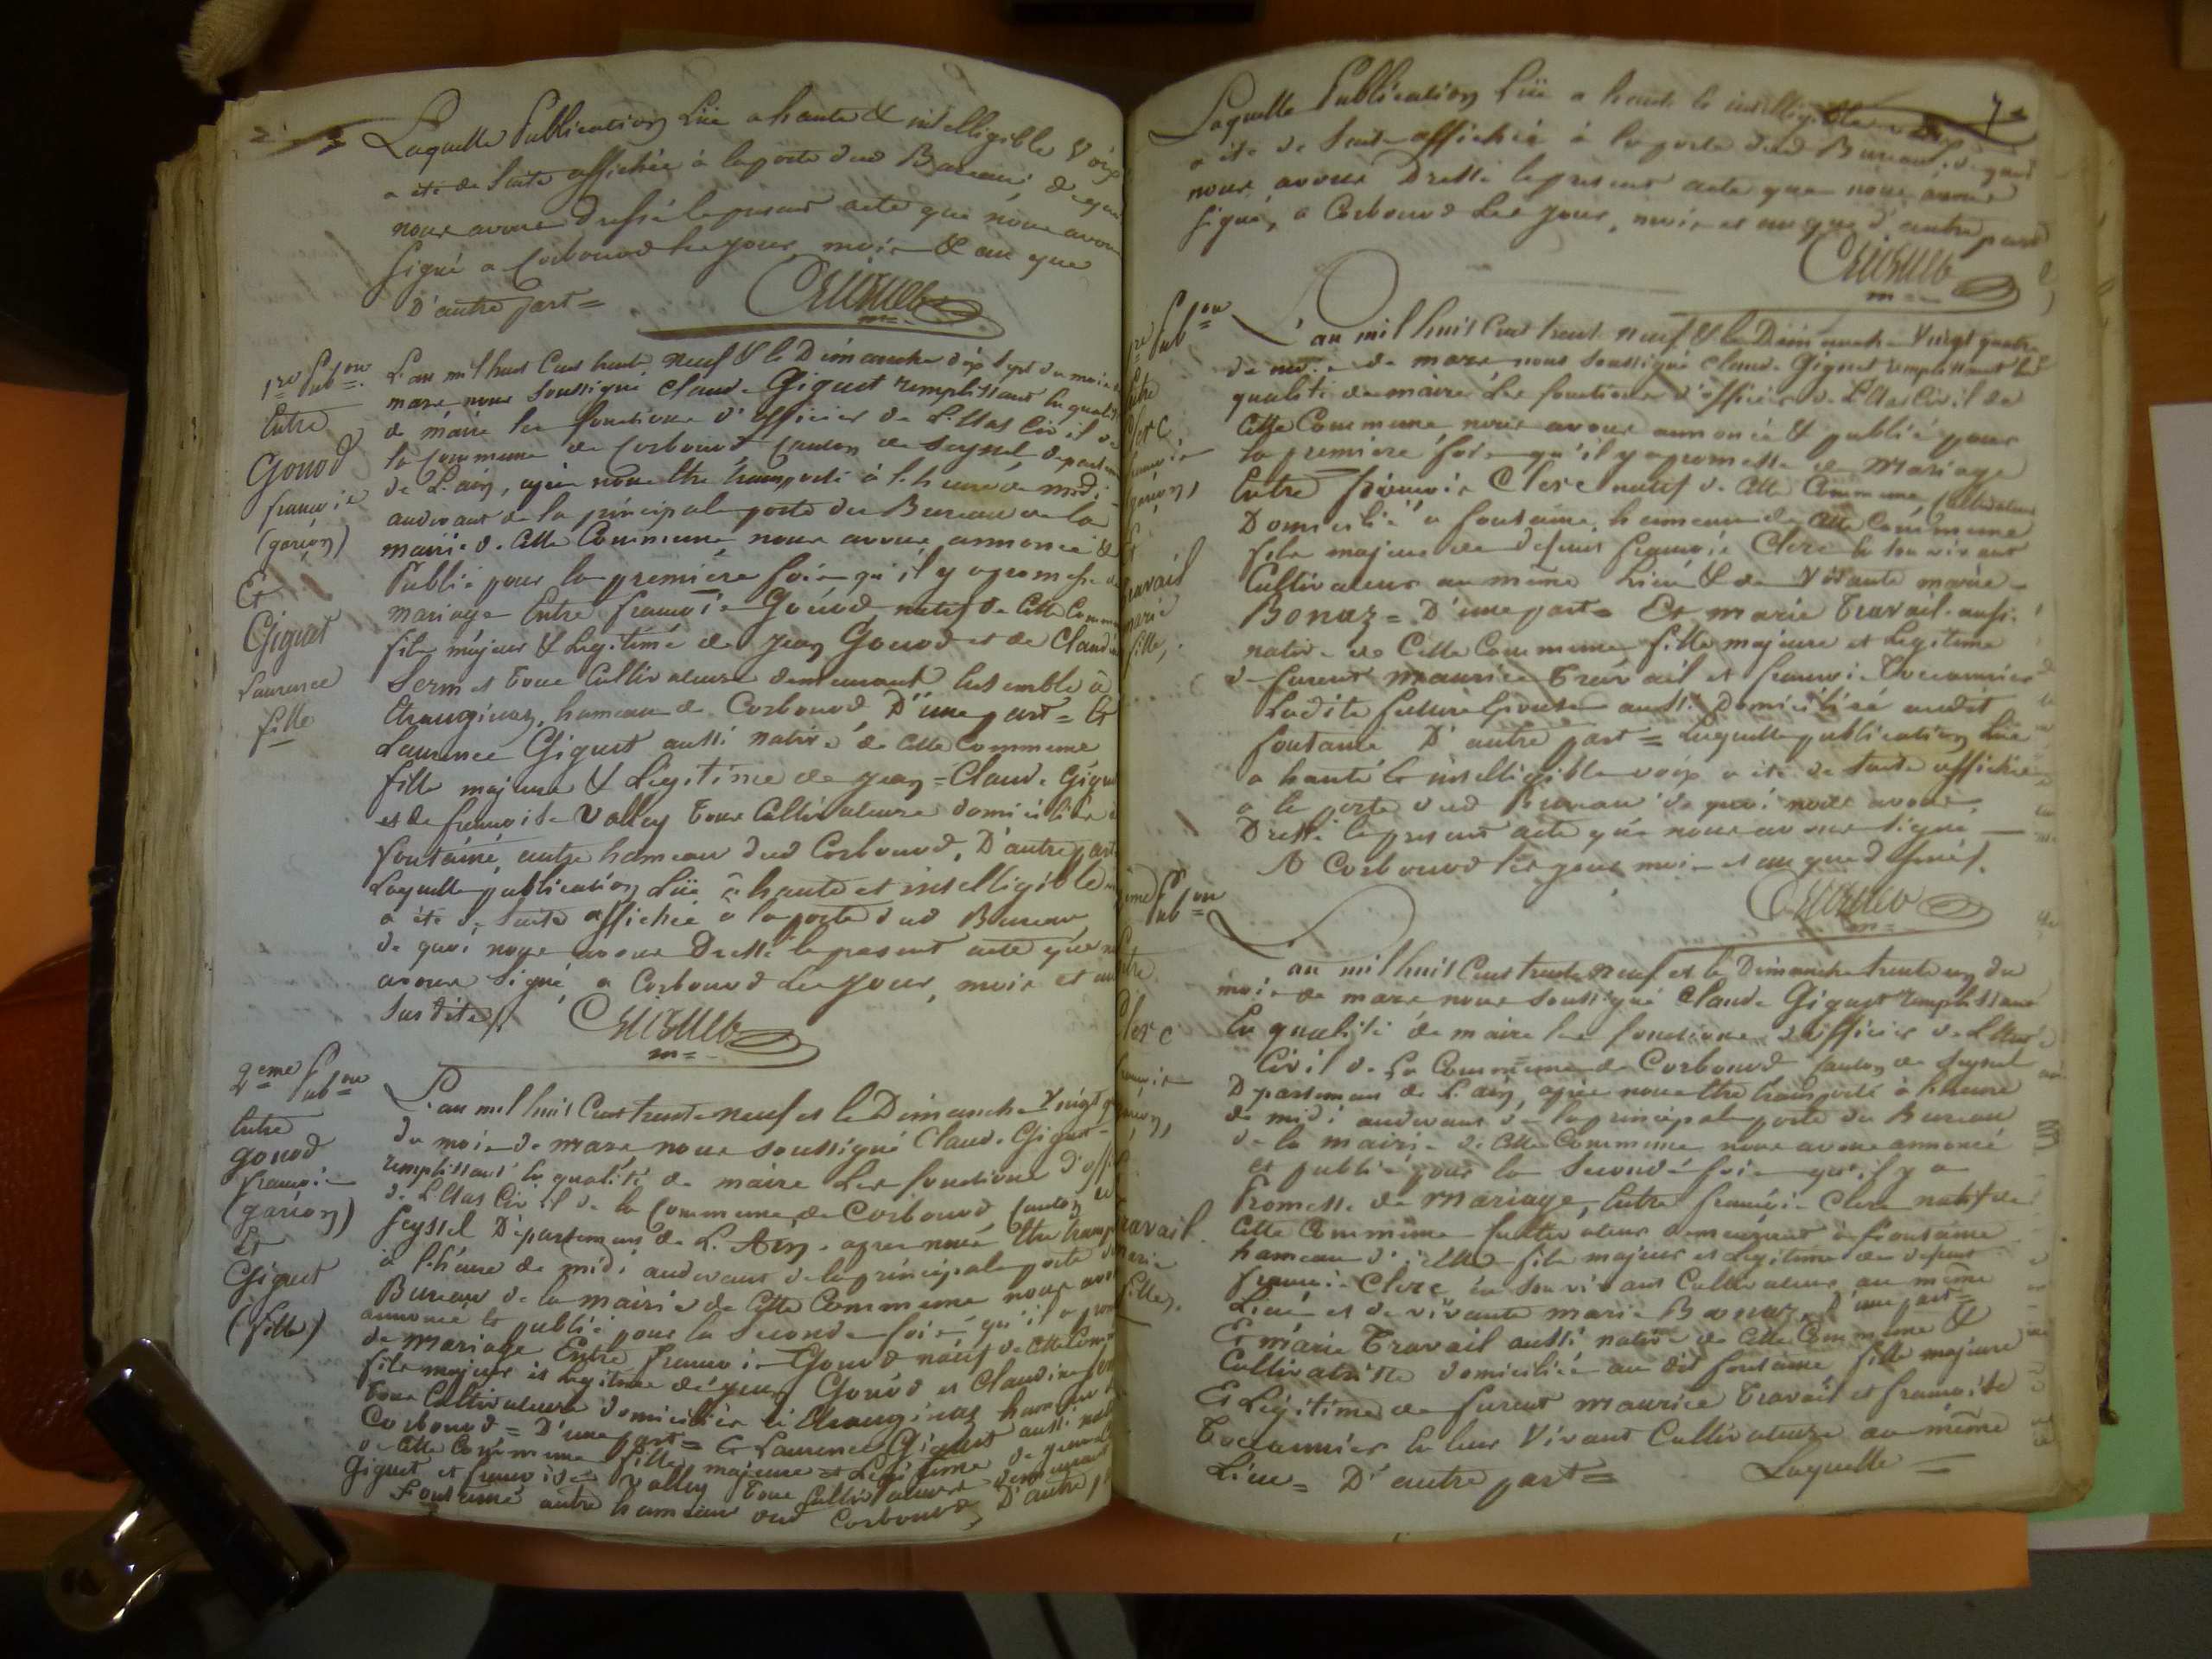 Laquelle Publication Lüe a haute & intelligible Voix
a été de Suite affichée à la porte dud Bureau, de quoi
nous avons dressé le present acte que nous avons
signé a Corbonod les jour, mois & an que
D'autre part =
1re Pubon
Entre
Gonod
françois
(garçon)
Et
Giguet
Laurence
fille
L'an mil huit Cent trente neuf & le Dimanche dix Sept du mois de
mars nous soussigné Claude Giguet remplissant en qualité
de maire les fonctions d'officier de L'Etat Civil de
la Commune de Corbonod, Canton de Seyssel departement
de L'ain, après nous être transporté à l'heure de midi
audevant de la principale porte du Bureau de la
mairie de Cette Commune nous avons annoncé &
Publié pour la première fois qu'il y a promesse de
mariage Entre françois Gonod natif de Cette Commune
fils majeur & Légitime de jean Gonod et de Claudine
Serm et tous Cultivateurs demeurant Ensemble à
Etranginaz, hameau de Corbonod, D'une part = Et
Laurence Giguet aussi native de Cette Commune
fille majeure & Légitime de jean = Claude Giguet
et de françoise Valley tous Cultivateurs domiciliés à
fontaine, autre hameau dud Corbonod, D'autre part
Laquelle publication Lüe à haute et intelligible
a été de Suite affichée à la porte dud Bureau
de quoi nous avons Dressé le present acte que nous
avons Signé, a Corbonod Les jour, mois et an
Susdits
2eme Pubon
Entre
gonod
françois
(garçon)
Et
Giguet
(fille)
L'an mil huit Cent trente neuf et le Dimanche Vingt
du mois de mars nous soussigné Claude Giguet
remplissant en qualité de maire Les fonctions d'officier
de L'Etat Civil de la Commune de Corbonod Canton de
Seyssel Département de L'Ain, apres nous être transporté
à l'heure de midi audevant de la principale porte du
Bureau de la mairie de Cette Commune nous avons
annoncé & publié pour la Seconde fois qu'il a promesse
de mariage Entre françois Gonod natif de Cette Commune
fils majeur et Légitime de jean Gonod et Claudine
tous Cultivateurs domiciliés à Etranginaz hameau de
Corbonod = D'une part = Et Laurence Giguet aussi native
de Cette Commune fille majeure et Légitime de jean
Giguet et françoise Valley tous Cultivateurs demeurant
fontaine autre hameau dud Corbonod, D'autre part
Laquelle Publication Lüe a haute & intelligible voix
a été de Suite affichée à la porte dud Bureau, de quoi
nous avons Dressé le present acte que nous avons
signé, a Corbonod Les jour, mois et an que d'autre part
1re Pubon
Entre
Clerc
françois
garçon,
Et
travail
marie
fille,
L'an mil huit Cent trente neuf & le Dimanche Vingt quatre
du mois de mars, nous soussigné Claude Giguet remplissant En
qualité de maire Les fonctions d'officier de L'Etat Civil de
Cette Commune nous avons annoncé & publié pour
la première fois qu'il y a promesse de Mariage
Entre françois Clerc natif de Cette Commune Cultivateur
Domicilié à fontaine, hameau de Cette Commune
fils majeur de defunt françois Clerc En son vivant
Cultivateur au même Lieu & de Vivante marie
Bonaz = D'une part = Et marie travail aussi
native de Cette Commune fille majeure et Legitime
de furent maurice travail et françoise
Ladite future Epouse aussi Domiciliée audit
fontaine D'autre part = Laquelle publication Lüe
a haute & intelligible voix a été de Suite affichée
a la porte dud Bureau de quoi nous avons
Dressé le present acte que nous avons signé
A Corbonod les jour mois et an que d
2eme Pubon
Entre
Clerc
françois
garçon,
travail
marie
fille,
L'an mil huit Cent trente neuf et le Dimanche trente un du
mois de mars nous soussigné Claude Giguet remplissant
En qualité de maire les fonctions d'officier de L'Etat
Civil de La Commune de Corbonod Canton de Seyssel
Departement de L'ain, après nous être transporté à l'heure
de midi audevant de la principale porte du Bureau
de la mairie de Cette Commune nous avons annoncé
et publié pour la Seconde fois qu'il y a
Promesse de Mariage, Entre françois Clerc natif de
Cette Commune Cultivateur demeurant à fontaine
hameau d'icelle fils majeur et Legitime de defunt
françois Clerc en son vivant Cultivateur au même
Lieu et de vivante marie Bonaz, D'une part =
Et marie travail aussi native de Cette Commune &
Cultivatrice domiciliée au dit fontaine fille majeure
Et Légitime de furent maurice travail et françoise
En leur Vivant Cultivateurs au même
Lieu = D'autre part = Laquelle